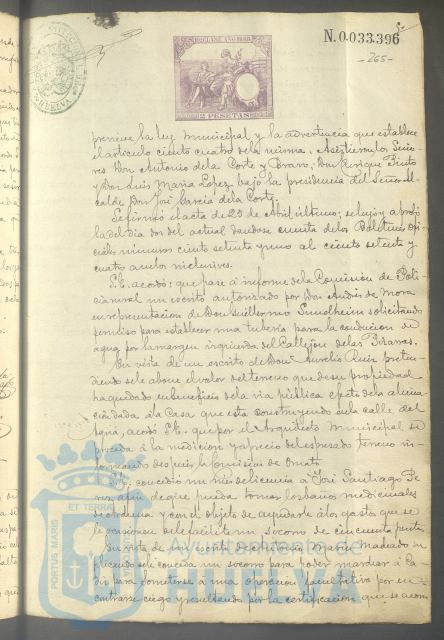 N.0.033.396
265
2 PESETAS
previene la ley municipal y la advertencia que establece
el artículo ciento cuatro de la misma. Asistieron los Seño-
res Don Antonio de la Corte y Bravo, Don Enrique Pinto
y Don Luis María Lopez bajo la presidencia del Señor Al-
calde Don José García de la Corte.
Se firmó el acta de 28 de Abril último; se leyó y aprobó
la del dia dos del actual dandose cuenta de los Boletines ofi-
ciales números ciento setenta y uno al ciento setenta y
cuatro ambos inclusives.
S.E. acordó: que pase á informe de la Comision de Poli-
cia rural un escrito autorizado por Don Andrés de Mora
en representacion de Don Guillermo Sundheim solicitando
permiso para establecer una tuberia para la conducion de
agua por la margen izquierda del Callejon de las
En vista de un escrito de Don Aurelio Ruiz preten-
diendo se le abone el valor del terreno que de su propiedad
ha quedado en beneficio de la via pública efecto de la alinea-
cion dada á la Casa que está construyendo en la calle del
acordó S.E. que por el Arquitecto municipal se
proceda á la medicion y aprecio del espresado terreno in-
formando despues la Comision de Ornato.
S.E. concedió un mes de licencia á José Santiago
á fin de que pueda tomar los baños medicinales
y con el objeto de ayudarle á los gastos que se
le ocasionen se le facilite un socorro de cincuenta pesetas
En vista de un escrito de Antonio
plicando se le conceda un socorro para poder marchar á
para someterse á una operacion facultativa por en-
contrarse ciego y resultando por la certificacion que se acom
PORTUS MARIS ET TERRÆ
Ayuntamiento de
HUELVA